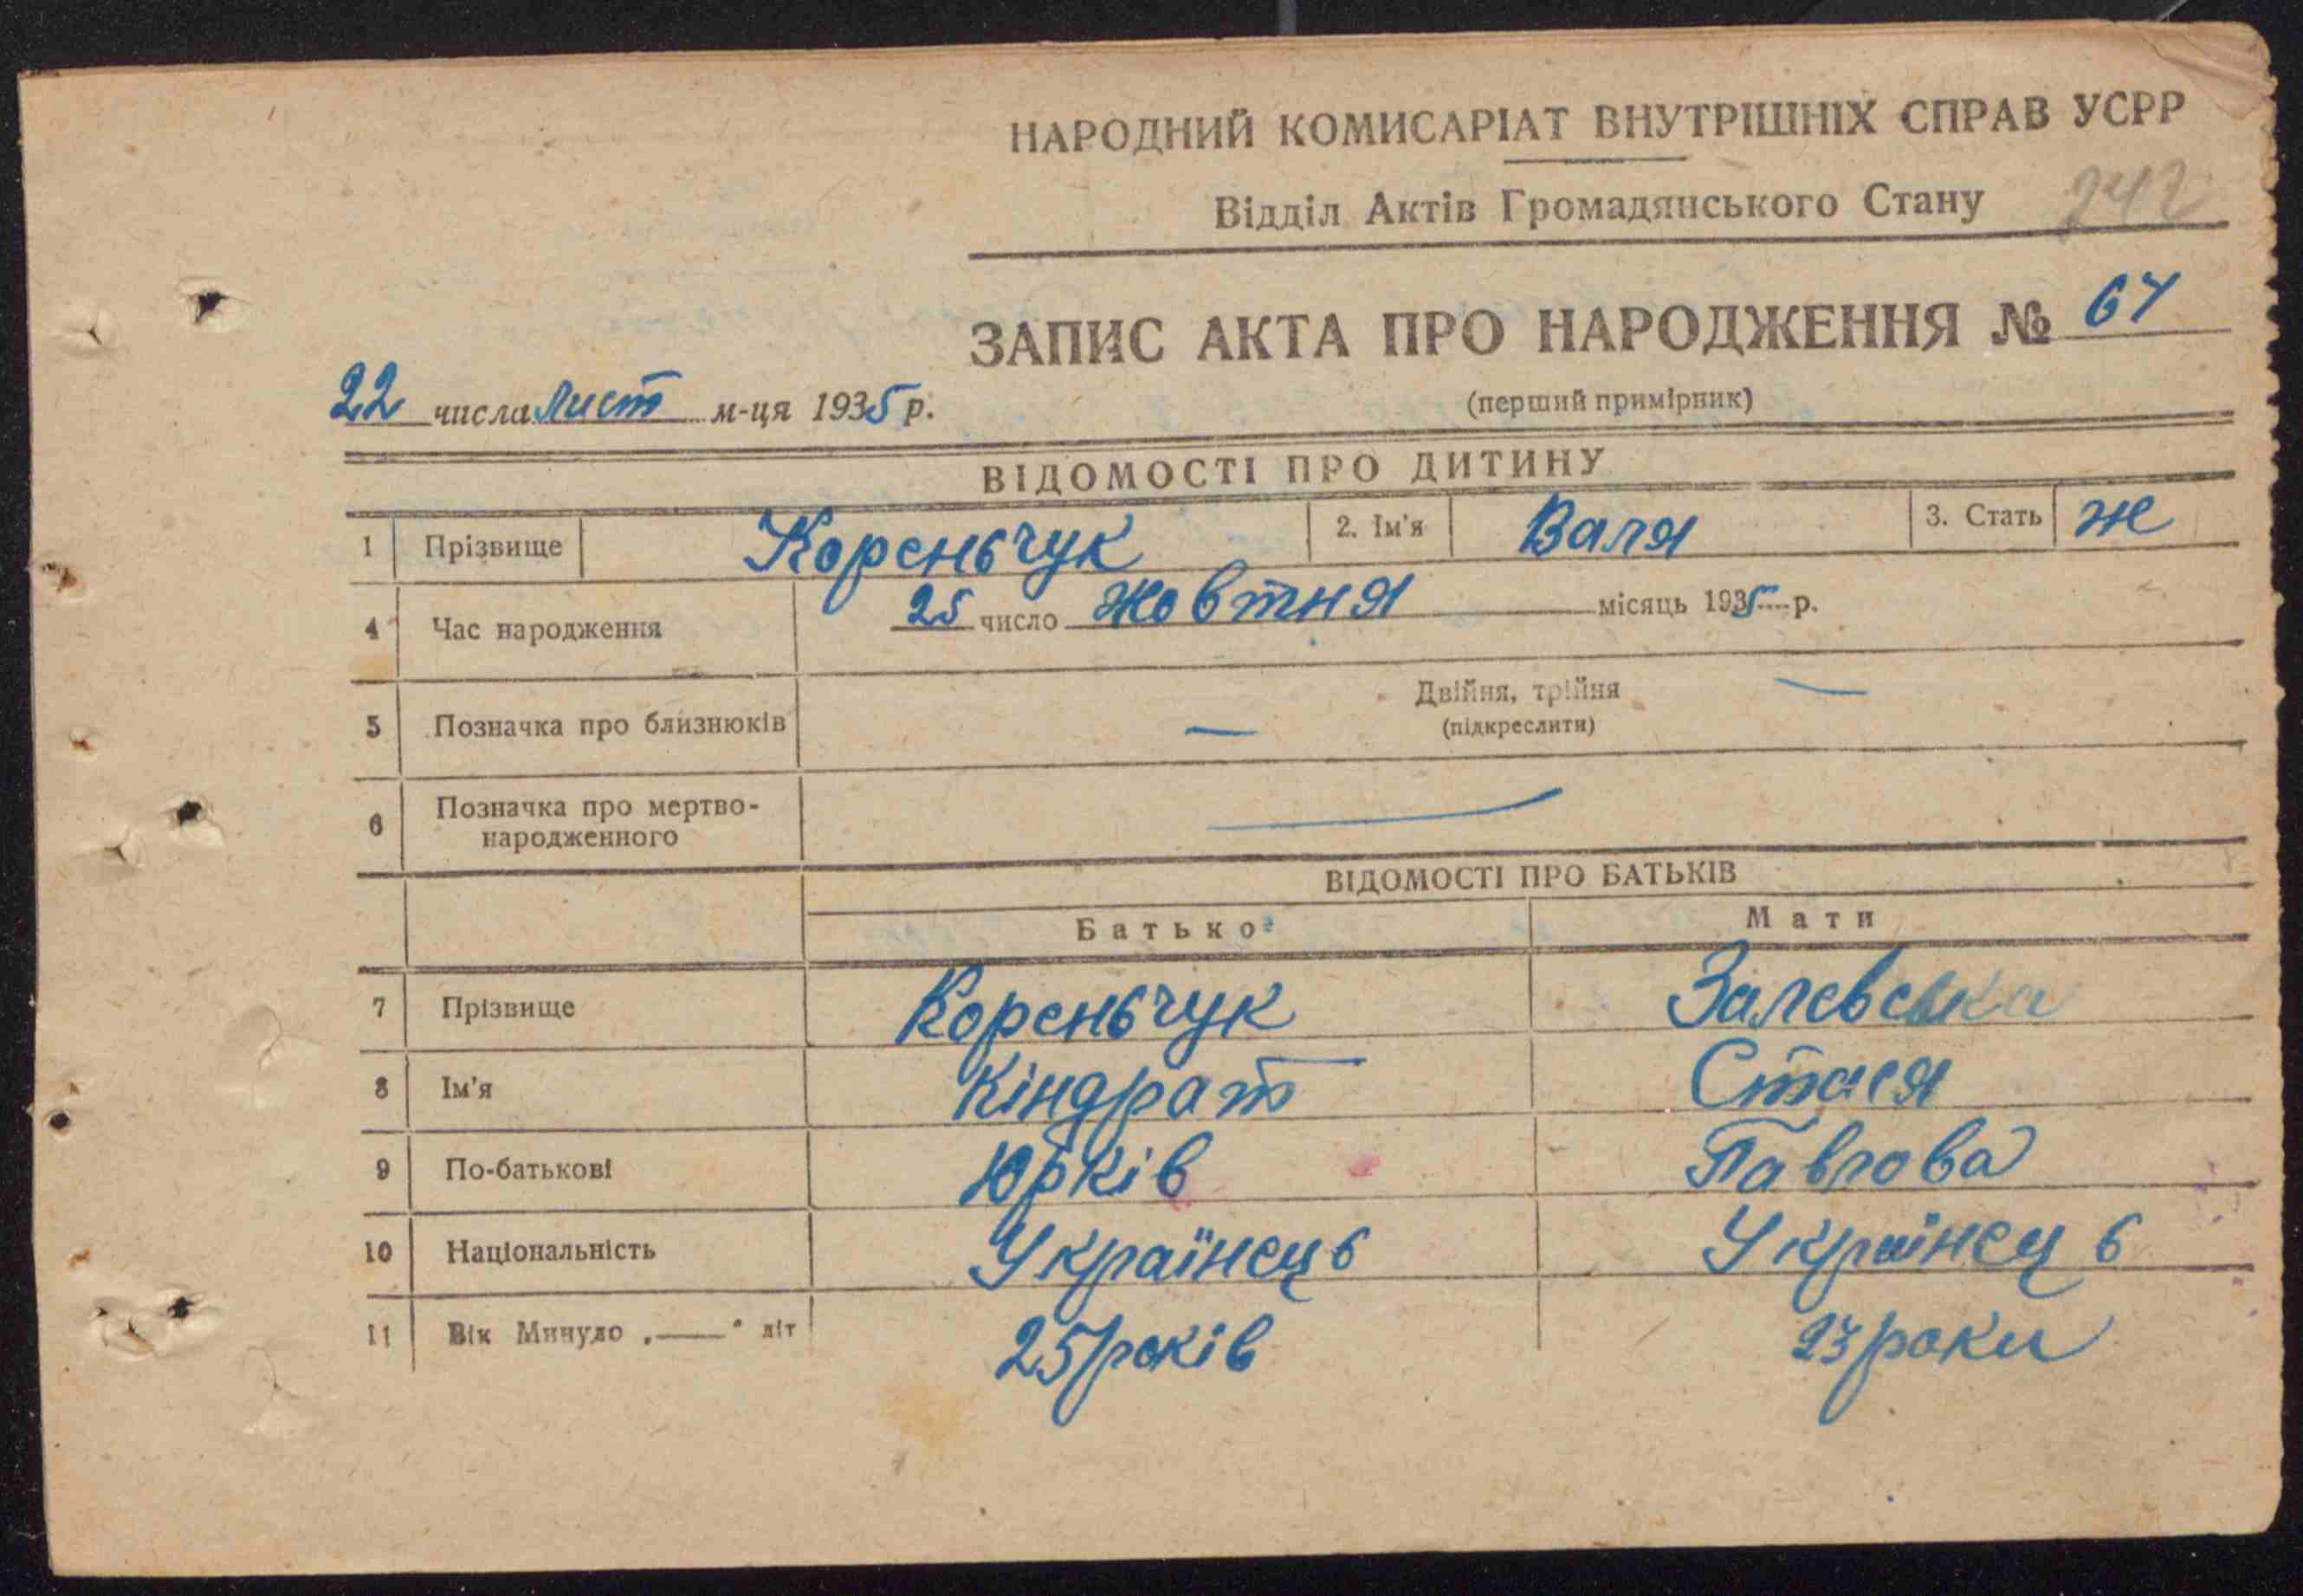 НАРОДНИЙ КОМИСАРІАТ ВНУТРІШНІХ СПРАВ УСРР
Відділ Актів Громадянського Стану 242
ЗАПИС АКТА ПРО НАРОДЖЕННЯ № 64
22 числа лист м-ця 1935 р.
(перший примірник)
ВІДОМОСТІ ПРО ДИТИНУ
1 Прізвище Кореньчук 2. Ім'я Валя 3. Стать ж
4 Час народження 25 число жовтня місяць 1935 р.
5 Позначка про близнюків — Двійня, трійня —
(підкреслити)
6 Позначка про мертво-
народженного —
ВІДОМОСТІ ПРО БАТЬКІВ
Батько Мати
7 Прізвище Кореньчук Залевська
8 Ім'я Кіндрат Стася
9 По-батькові Юрків Павлова
10 Національність Українець Українець
11 Вік Минуло „——" літ 25 років 23 роки